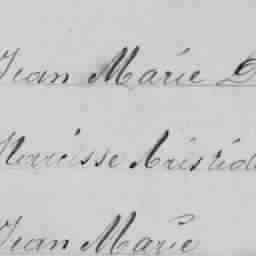 Jean Marie D
Narcisse Aristide
Jean Marie